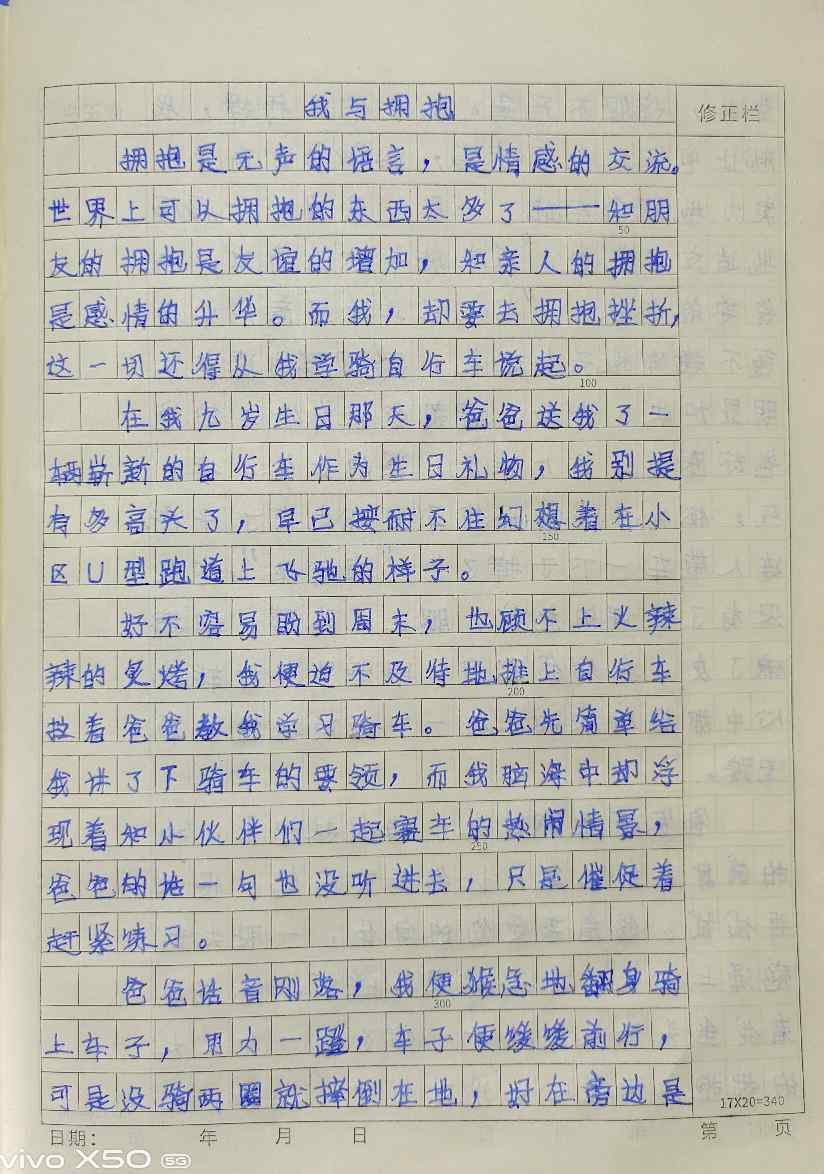 我与拥抱
修正栏
拥抱是无声的语言，是情感的交流。
世界上可以拥抱的东西太多了——和朋
50
友的拥抱是友谊的增加，和亲人的拥抱
是感情的升华。而我，却要去拥抱挫折，
这一切还得从我学骑自行车说起。
100
在我九岁生日那天，爸爸送我了一
辆崭新的自行车作为生日礼物，我别提
有多高兴了，早已按耐不住幻想着在小
150
区U型跑道上飞驰的样子。
好不容易盼到周末，也顾不上火辣
辣的炙烤，我便迫不及待地推上自行车
200
拉着爸爸教我学习骑车。爸爸先简单给
我讲了下骑车的要领，而我脑海中却浮
现着和小伙伴们一起赛车的热闹情景，
250
爸爸的话一句也没听进去，只是催促着
赶紧练习。
爸爸话音刚落，我便猴急地翻身骑
300
上车子，用力一蹬，车子便缓缓前行，
可是没骑两圈就摔倒在地，好在旁边是
17X20=340
日期： 年 月 日 第 页
vivo X50 5G